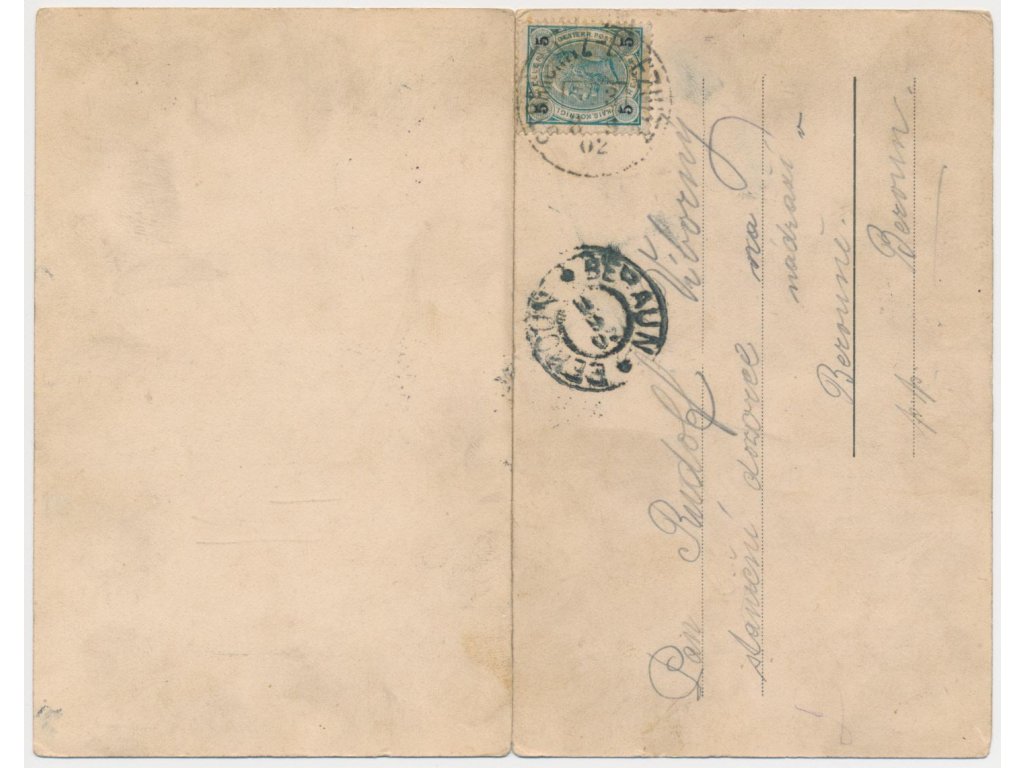 Pan Rudolf Výborný
staniční dozorce na
nádraží v
Berouně.
p. p. Beroun.
BERAUN
BEROUN
02
5 5
5 5